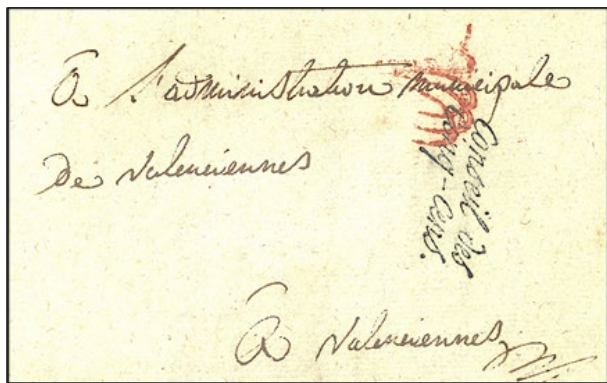 A l'administration municipale
de valenciennes
Conseil des
Cinq-Cents.
A valenciennes